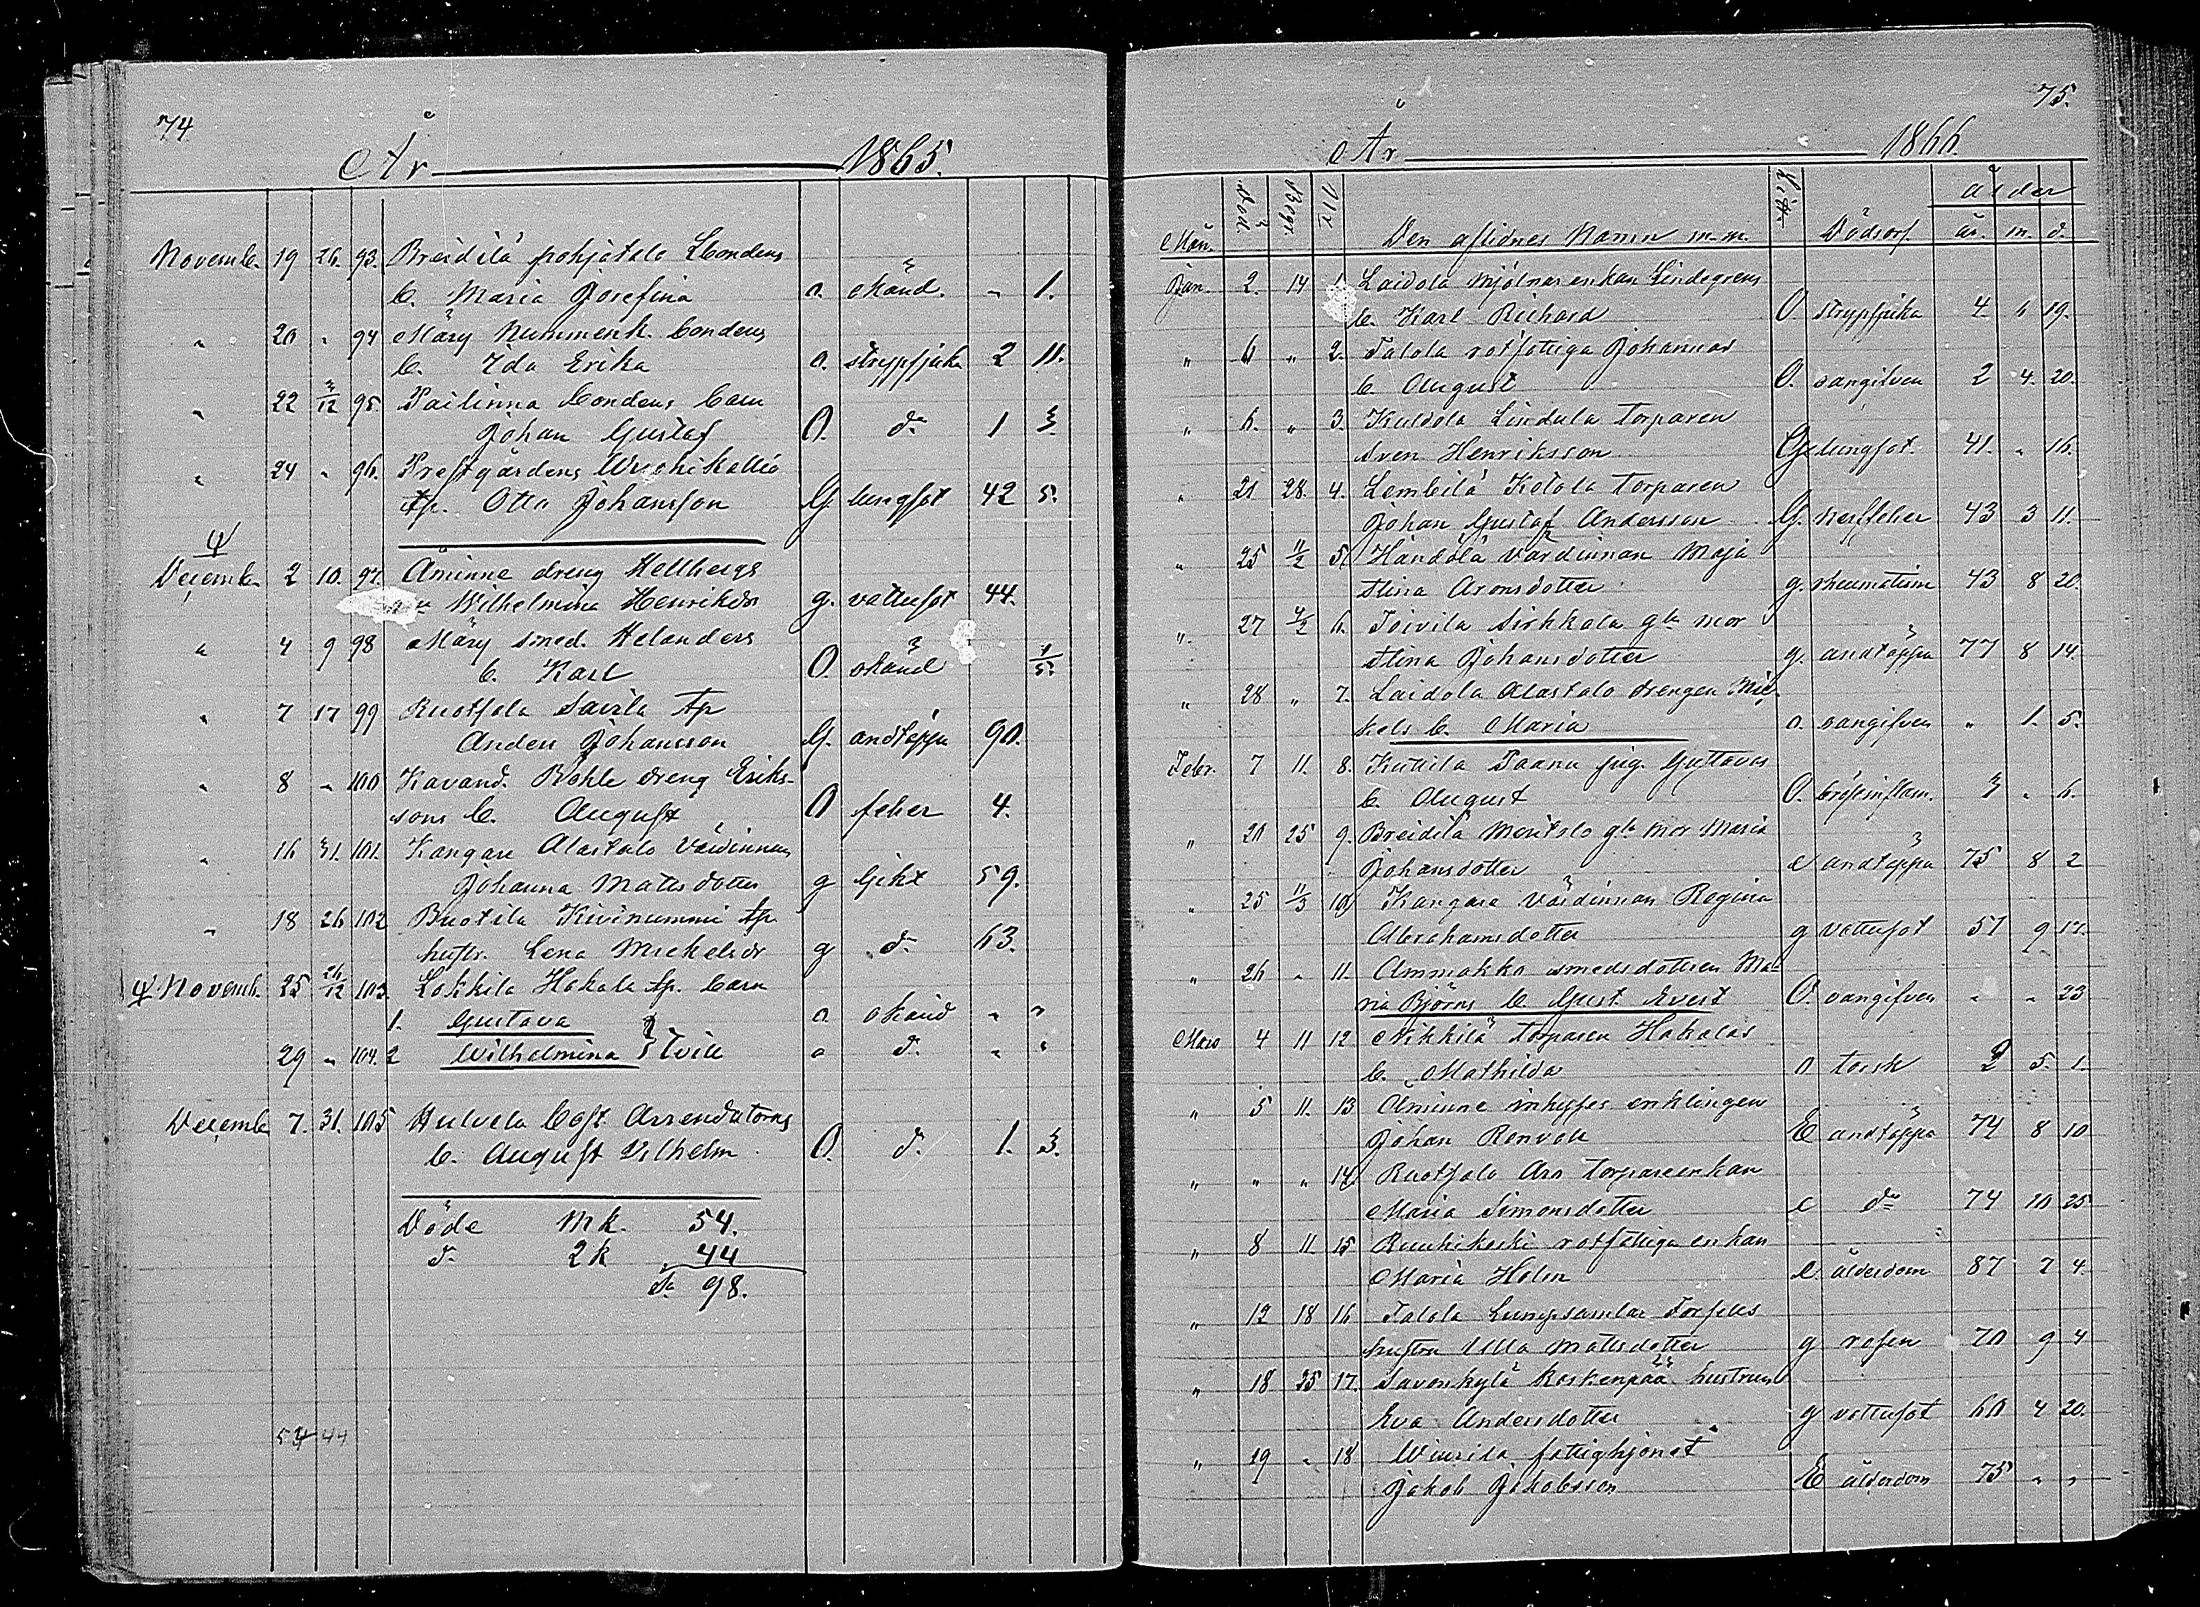 74.
År 1865.
Novemb. 19 26. 93. Breidilä pohjatalo Bondens
b. Maria Josefina o. okänd. " 1.
" 20 " 94 Märy Nummenk. bondens
b. Ida Erika o. strypsjuka 2 11.
" 22 3/12 95. Pailinna bondens barn
Johan Gustaf O. do 1 3.
" 24 " 96. Prestgårdens Wuohikallio
tp. Otto Johansson G. lungsot 42 5.
Decemb. 2 10. 97. Åminne dreng Hellbergs
Wilhelmina Henriksdr g. vattusot 44.
" 4 9 98 Märy smed. Helanders
b. Karl O. okänd 1/5.
" 7 17 99 Ruotsala Savila tp
Anders Johansson G. andtäppa 90.
" 8 " 100 Kavand. Bohle dreng Eriks-
sons b. August O feber 4.
" 16 31. 101. Kangare Alastalo värdinnan
Johanna Mattsdotter g Gikt 59.
" 18 26 102 Buotila Kivinummi tp.
hustr. Lena Mickelsdr g do 63.
Novemb. 25 26/12 103. Lokkila Hakala tp. barn
1. Gustava o okänd " "
29 " 104. 2 Wilhelmina tvill o do " "
Decemb 7. 31. 105 Hulvela Bost. Arrendatorns
b. August Vilhelm O. do 1. 3.
Döde Mk. 54.
do 2k 44
Sa 98.
54 44
75.
År 1866.
Mån. Död. Begr. Nr Den aflidnes Namn m.m. Litt. Dödsors. ålder
år. m. d.
Jan. 2. 14 1. Laidola Mjölnar enkan Lindegrens
b. Karl Richard O. strypsjuka 4 6 19.
" 6 " 2. Talola rotfattiga Johannas
b August O. oangifven 2 4. 20.
" 6. " 3. Kuldola Lindula torparen
Sven Henriksson G lungsot. 41. " 16.
" 21 28. 4. Lembilä Kotola torparen
Johan Gustaf Andersson G. nerffeber 43 3 11.
" 25 11/2 5. Händölä värdinnan Maja
Stina Aronsdotter g. rheumatism 43 8 20.
" 27 4/2 6. Toivila Sirkkala gla mor
Stina Johansdotter g. andtäppa 77 8 14.
" 28 " 7. Laidola Alastalo drengen Mic-
kels b. Maria o. oangifven " 1. 5.
Febr. 7 11. 8. Kuttila Paanu pig. Gustavas
b August O. bröstinflam. 3 " 6.
" 20 25 9. Breidilä Meritalo gla mor Maria
Johansdotter e andtäppa 75 8 2
" 25 11/3 10 Kangare värdinnan Regina
Abrahamsdotter g vattusot 57 9 17.
" 26 " 11. Ammakko smedsdottren Ma-
ria Björns b Gust. Evert O. oangifven " " 23
Mars 4 11 12 Nikkilä torparen Hakalas
b. Mathilda o torsk 2 5. 1.
" 5 11. 13 Åminne inhyses enklingen
Johan Renvall E andtäppa 74 8 10
" " " 14 Ruotsala Aro torpareenkan
Maria Simonsdotter e do 74 10 25
" 8 11. 15 Ruuhikoski rotfattiga enkan
Maria Holm e. ålderdom 87 7 4.
" 12 18 16 Talola Lumpsamlar
hustru Ulla Mattsdotter g rosen 70 9 4
" 18 25 17. Savonkylä Koskenpää hustrun
Eva Andersdotter g vattusot 60 4 20.
" 19 " 18 Wiurila fattighjonet
Jakob Jakobsson E ålderdom 75 " "